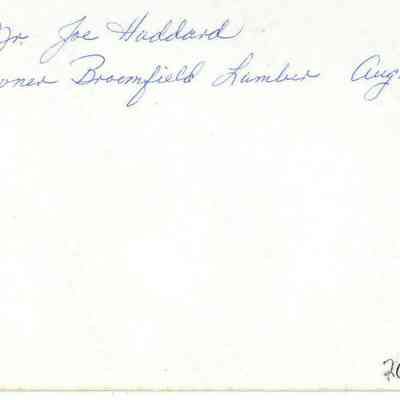 Mr. Joe Haddard
Owner Broomfield Lumber Aug
20